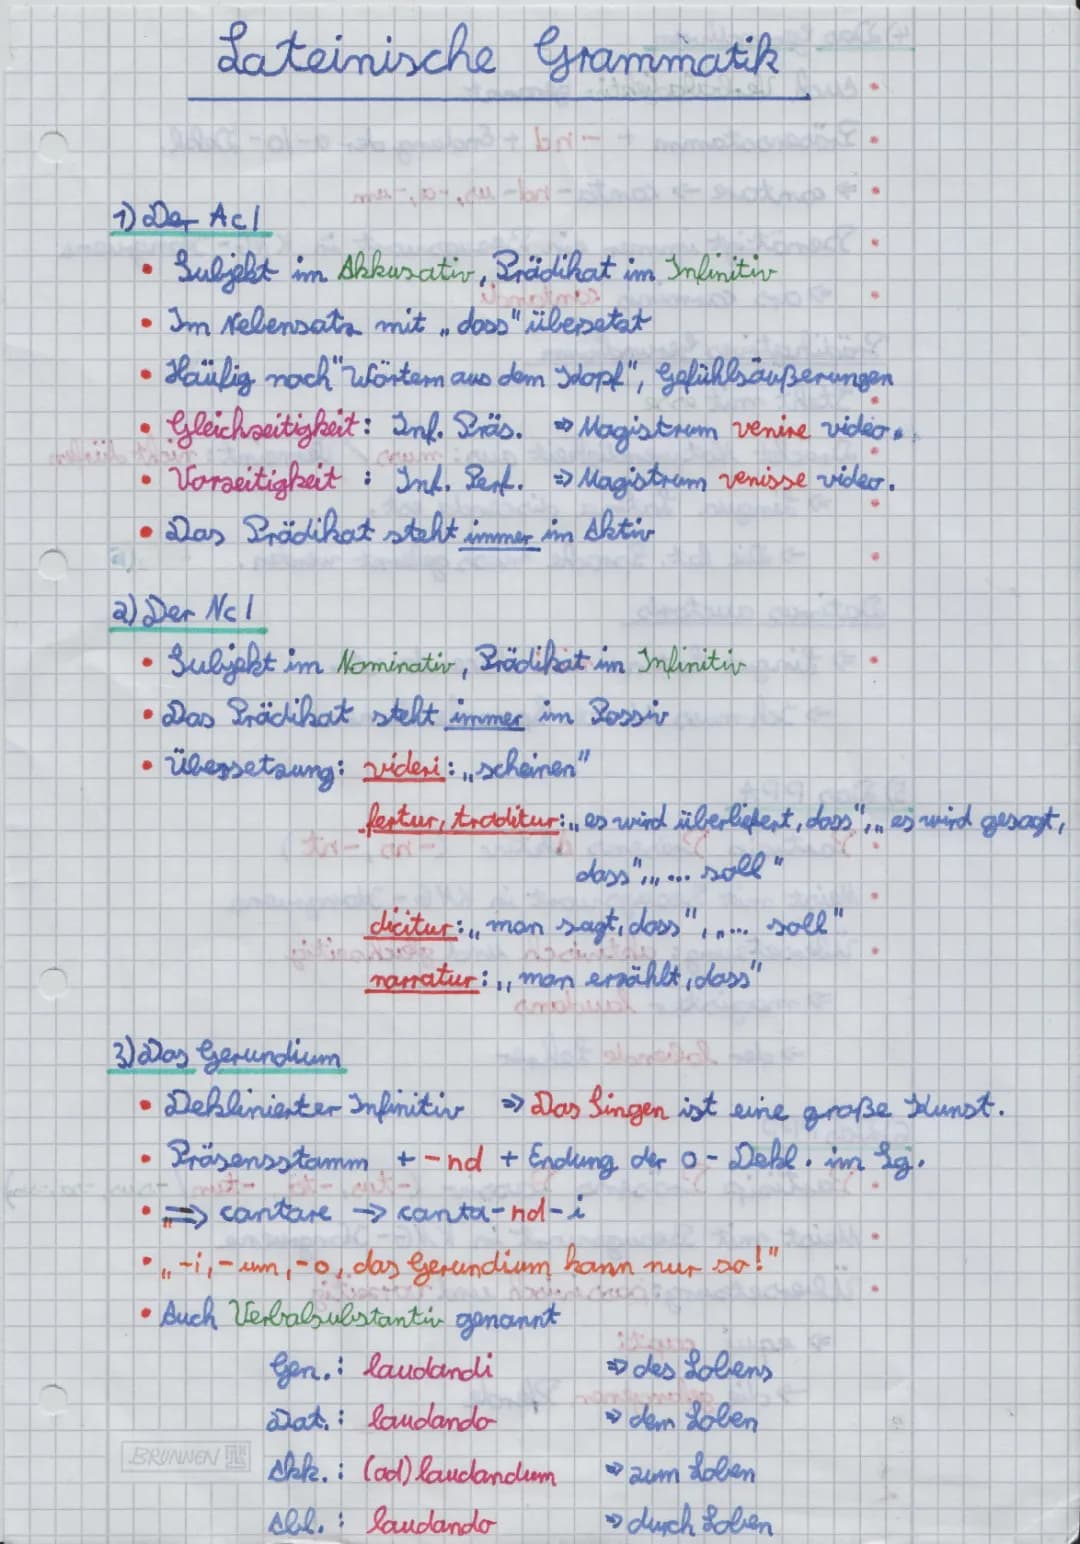 Lateinische Grammatik
1) Der AcI
• Subjekt im Akkusativ, Prädikat im Infinitiv
• Im Nebensatz mit „dass" übersetzt
• Häufig nach "Wörtern aus dem Kopf", Gefühlsäußerungen
• Gleichzeitigkeit: Inf. Präs. ⇒ Magistrum venire video.
• Vorzeitigkeit : Inf. Perf. ⇒ Magistrum venisse video.
• Das Prädikat steht immer im Aktiv
2) Der NcI
• Subjekt im Nominativ, Prädikat im Infinitiv
• Das Prädikat steht immer im Passiv
• Übersetzung: videri: „scheinen"
fertur, traditur: „es wird überliefert, dass", „es wird gesagt,
dass", „... soll"
dicitur: „man sagt, dass", „... soll"
narratur: „man erzählt, dass"
3) Das Gerundium
• Deklinierter Infinitiv ⇒ Das Singen ist eine große Kunst.
• Präsensstamm + -nd + Endung der o-Dekl. im Sg.
• ⇒ cantare → canta-nd-i
• „-i, -um, -o, das Gerundium kann nur so!"
• Auch Verbalsubstantiv genannt
Gen.: laudandi ⇒ des Lobens
Dat.: laudando ⇒ dem Loben
BRUNNEN
Akk.: (ad) laudandum ⇒ zum Loben
Abl.: laudando ⇒ durch Loben